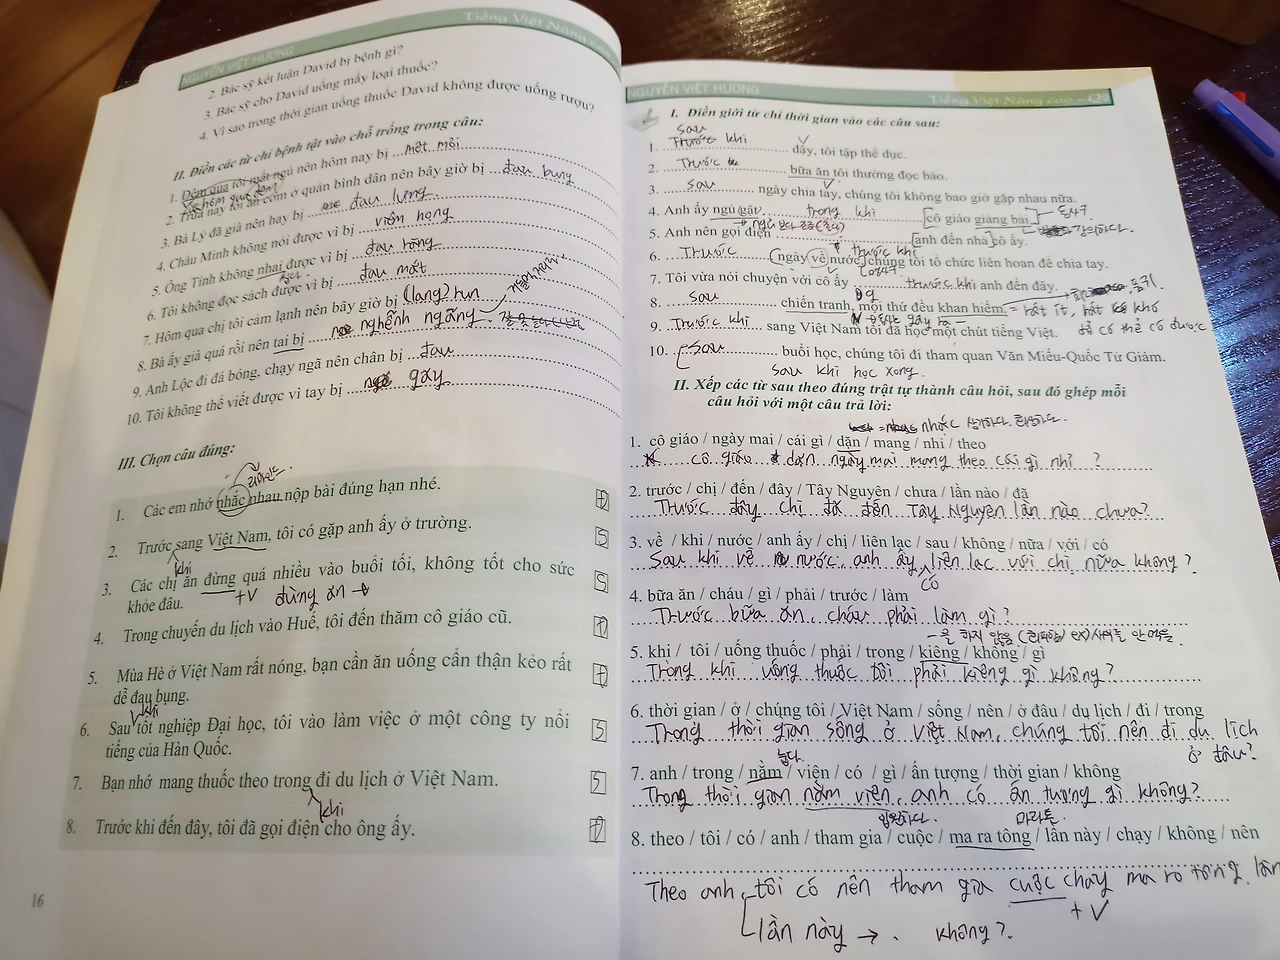 NGUYỄN VIỆT HƯƠNG
Tiếng Việt Nâng cao
2. Bác sỹ kết luận David bị bệnh gì?
3. Bác sỹ cho David uống mấy loại thuốc?
4. Vì sao trong thời gian uống thuốc David không được uống rượu?
II. Điền các từ chỉ bệnh tật vào chỗ trống trong câu:
1. Đêm qua tôi mất ngủ nên hôm nay bị mệt mỏi
2. Trưa nay tôi ăn cơm ở quán bình dân nên bây giờ bị đau bụng
3. Bà Lý đã già nên hay bị đau lưng
4. Cháu Minh không nói được vì bị viêm họng
5. Ông Tính không nhai được vì bị đau răng
6. Tôi không đọc sách được vì bị đau mắt
7. Hôm qua chị tôi cảm lạnh nên bây giờ bị (lang) run
8. Bà ấy già quá rồi nên tai bị nghễnh ngãng
9. Anh Lộc đi đá bóng, chạy ngã nên chân bị đau
10. Tôi không thể viết được vì tay bị gãy
III. Chọn câu đúng:
1. Các em nhớ nhắc nhau nộp bài đúng hạn nhé. Đ
2. Trước sang Việt Nam, tôi có gặp anh ấy ở trường. S
khi
3. Các chị ăn đừng quá nhiều vào buổi tối, không tốt cho sức S
khỏe đâu. +V đừng ăn →
4. Trong chuyến du lịch vào Huế, tôi đến thăm cô giáo cũ. Đ
5. Mùa Hè ở Việt Nam rất nóng, bạn cần ăn uống cẩn thận kẻo rất Đ
dễ đau bụng.
khi
6. Sau tốt nghiệp Đại học, tôi vào làm việc ở một công ty nổi S
tiếng của Hàn Quốc.
7. Bạn nhớ mang thuốc theo trong đi du lịch ở Việt Nam. S
khi
8. Trước khi đến đây, tôi đã gọi điện cho ông ấy. Đ
16
NGUYỄN VIỆT HƯƠNG
Tiếng Việt Nâng cao - Q2
I. Điền giới từ chỉ thời gian vào các câu sau:
sau
1. Trước khi dậy, tôi tập thể dục.
V
2. Trước bữa ăn tôi thường đọc báo.
3. sau ngày chia tay, chúng tôi không bao giờ gặp nhau nữa.
4. Anh ấy ngủ gật trong khi cô giáo giảng bài.
5. Anh nên gọi điện trước khi anh đến nhà cô ấy.
6. Trước ngày về nước, chúng tôi tổ chức liên hoan để chia tay.
7. Tôi vừa nói chuyện với cô ấy trước khi anh đến đây.
8. sau chiến tranh, mọi thứ đều khan hiếm. = rất ít, rất khó
để có thể có được
9. Trước khi sang Việt Nam tôi đã học một chút tiếng Việt.
10. Sau buổi học, chúng tôi đi tham quan Văn Miếu-Quốc Tử Giám.
sau khi học xong.
II. Xếp các từ sau theo đúng trật tự thành câu hỏi, sau đó ghép mỗi
câu hỏi với một câu trả lời:
1. cô giáo / ngày mai / cái gì / dặn / mang / nhỉ / theo
cô giáo dặn ngày mai mang theo cái gì nhỉ ?
2. trước / chị / đến / đây / Tây Nguyên / chưa / lần nào / đã
Trước đây chị đã đến Tây Nguyên lần nào chưa?
3. về / khi / nước / anh ấy / chị / liên lạc / sau / không / nữa / với / có
Sau khi về nước, anh ấy liên lạc với chị nữa không?
có
4. bữa ăn / cháu / gì / phải / trước / làm
Trước bữa ăn, cháu phải làm gì?
5. khi / tôi / uống thuốc / phải / trong / kiêng / không / gì
Trong khi uống thuốc tôi phải kiêng gì không?
6. thời gian / ở / chúng tôi / Việt Nam / sống / nên / ở đâu / du lịch / đi / trong
Trong thời gian sống ở Việt Nam, chúng tôi nên đi du lịch
ở đâu?
눕다
7. anh / trong / nằm / viện / có / gì / ấn tượng / thời gian / không
Trong thời gian nằm viện, anh có ấn tượng gì không?
입원하다. 마라톤
8. theo / tôi / có / anh / tham gia / cuộc / ma ra tông / lần này / chạy / không / nên
Theo anh, tôi có nên tham gia cuộc chạy ma ra tông lần
lần này → . không?
+ V